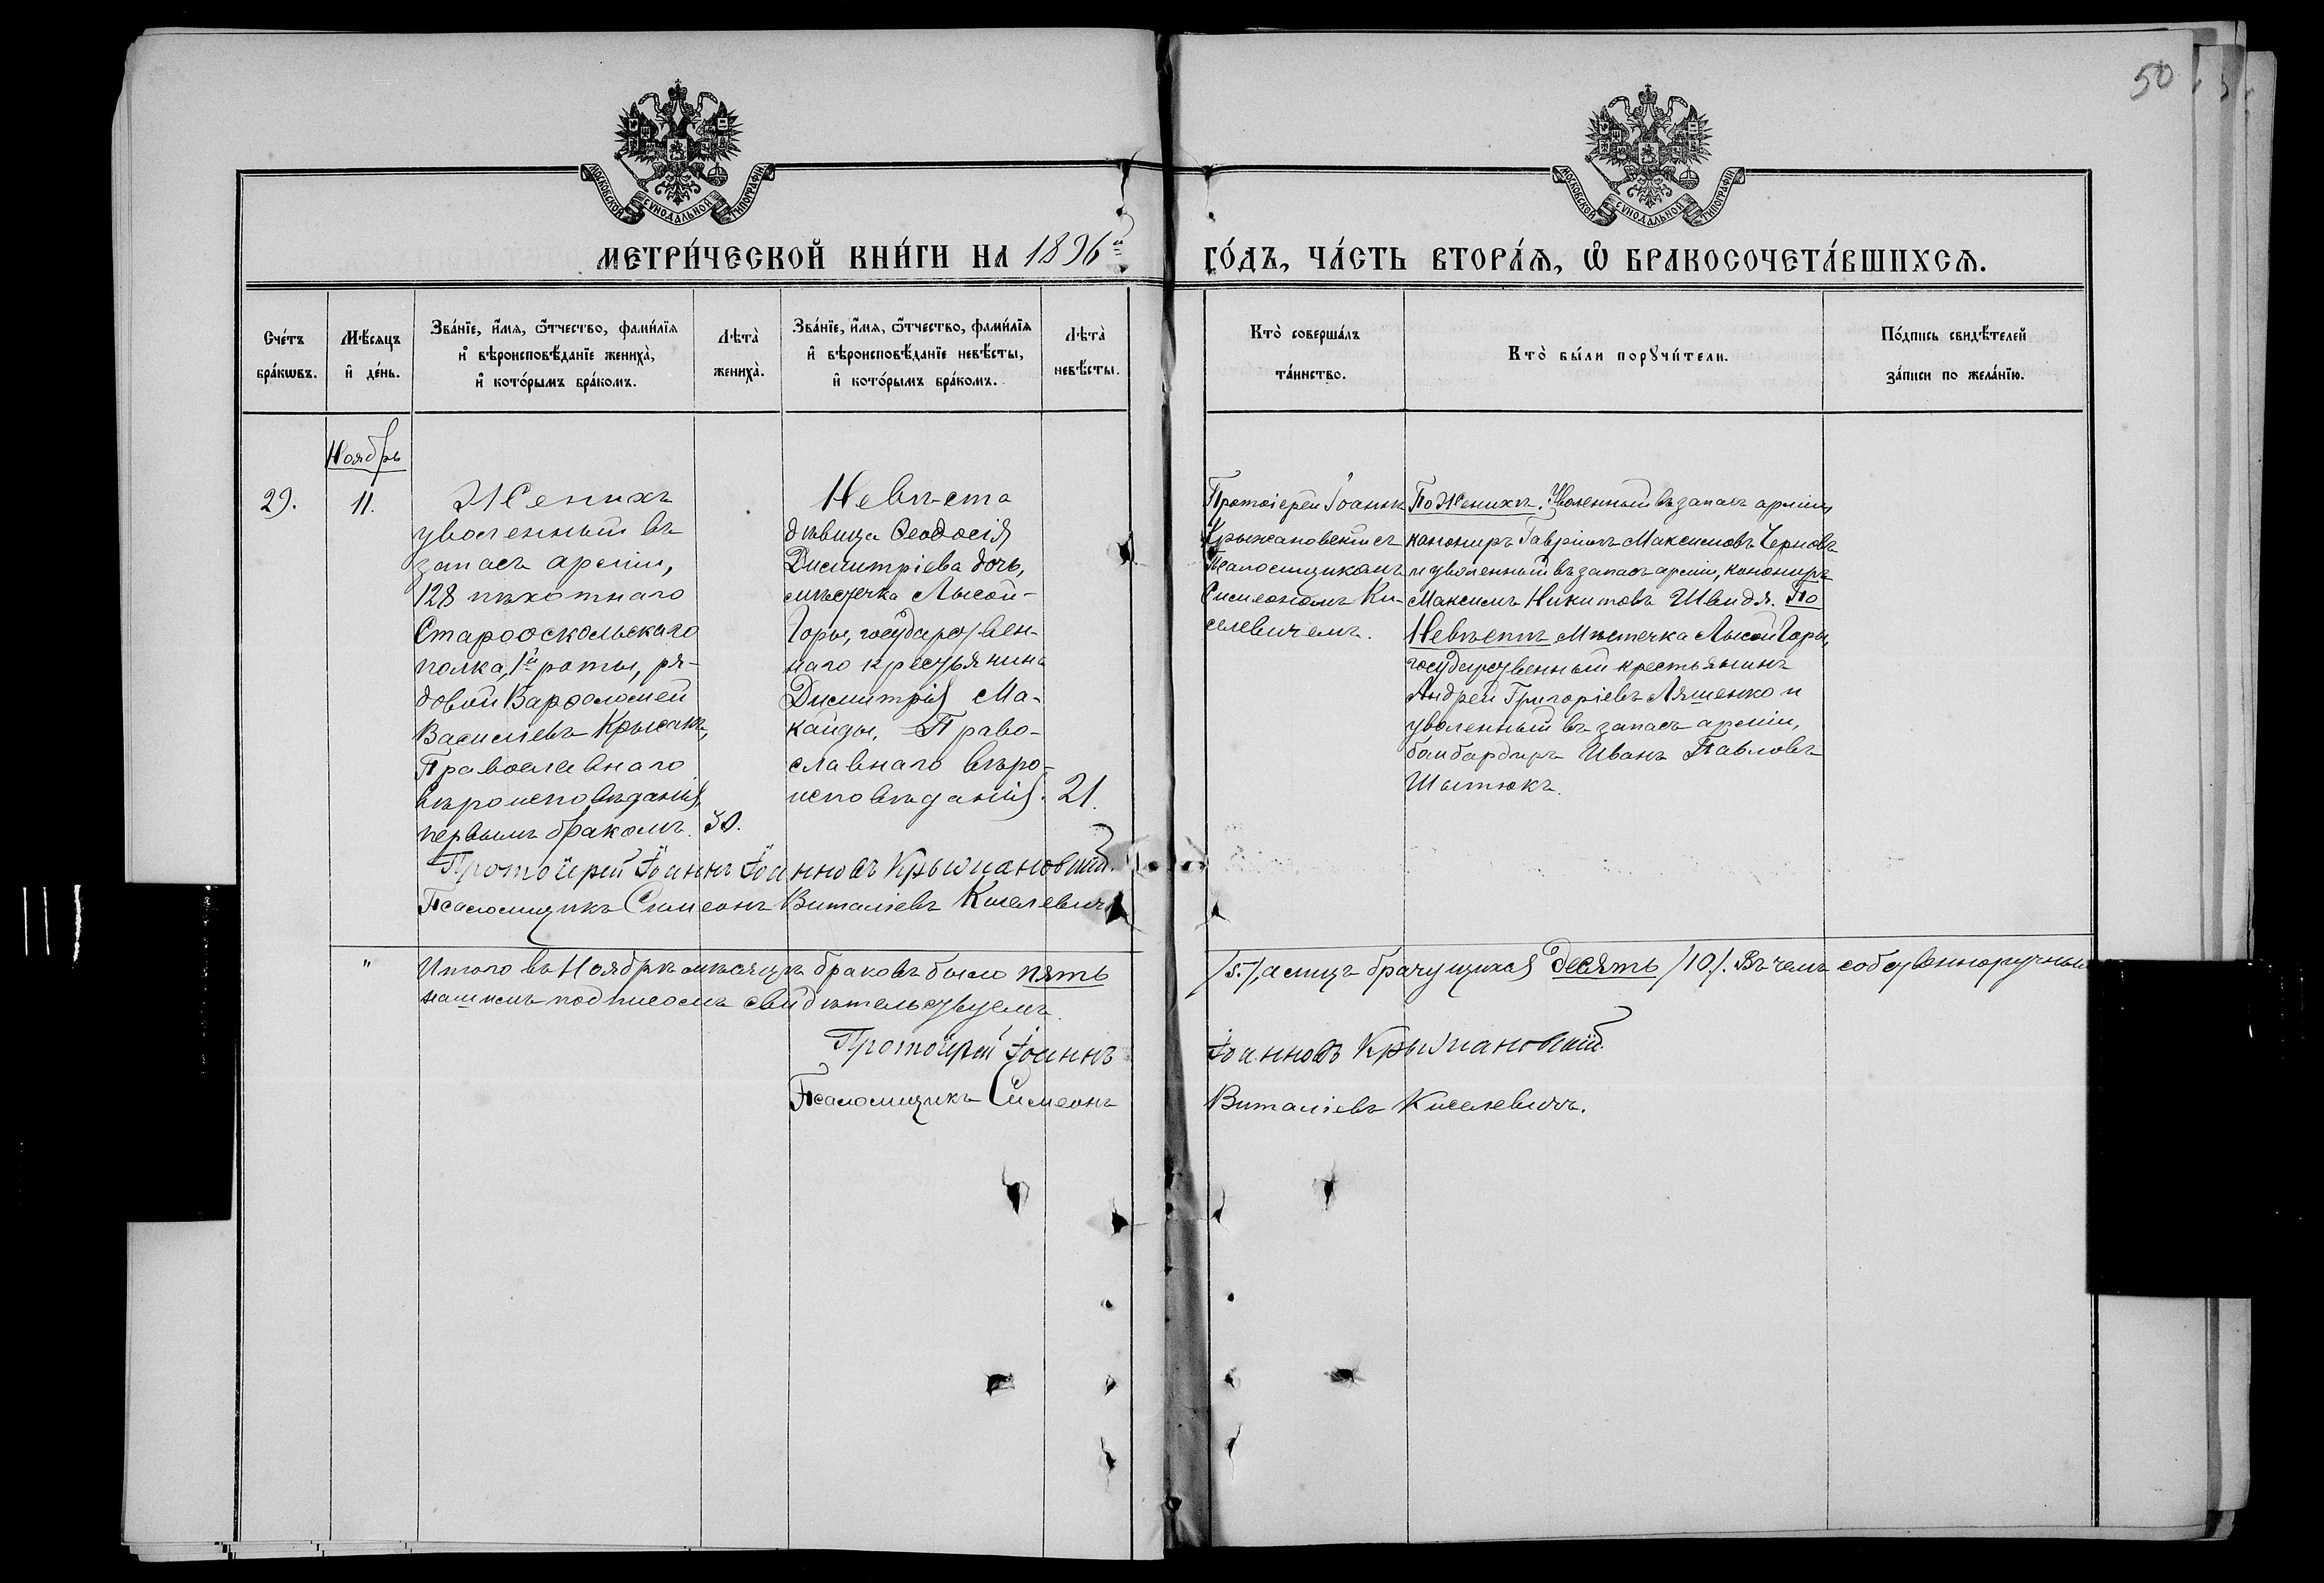 50
МОСКОВСКОЙ СѴНОДАЛЬНОЙ ТИПОГРАФІИ
МОСКОВСКОЙ СѴНОДАЛЬНОЙ ТИПОГРАФІИ
МЕТРИ́ЧЕСКОЙ КНИ́ГИ НА 1896й
ГО́ДЪ, ЧА́СТЬ ВТОРА́Я, Ѽ БРАКОСОЧЕТА́ВШИХСЯ.
Сче́тъ
бра́кѡвъ.
Мѣ́сяцъ
и҆ де́нь.
Зва́нїе, и҆́мя, ѻ҆́тчество, фами́лїя
и҆ вѣроисповѣ́данїе жениха̀,
и҆ кото́рымъ бра́комъ.
Лѣта̀
жениха̀.
Зва́нїе, и҆́мя, ѻ҆́тчество, фами́лїя
и҆ вѣроисповѣ́данїе невѣ́сты,
и҆ кото́рымъ бра́комъ.
Лѣта̀
невѣ́сты.
Кто̀ соверша́лъ
та́инство.
Кто̀ бы́ли порꙋчи́тели.
По́дпись свидѣ́телей
за́писи по жела́нїю.
Ноябрь
29.
11.
Женихъ
уволенный въ
запасъ арміи,
128 пѣхотнаго
Старооскольскаго
полка, 1й роты, ря-
довой Варѳоломей
Василіевъ Крысакъ,
Православнаго
вѣроисповѣданія,
первымъ бракомъ.
30.
Невѣста
дѣвица Ѳеодосія
Димитріева дочь,
мѣстечка Лысой-
Горы, государствен-
наго крестьянина
Димитрія Ма-
кайды. Право-
славнаго вѣро-
исповѣданія.
21.
Протоіерей Іоаннъ
Крыжановскій съ
Псаломщикомъ
Симеономъ Ки-
селевичемъ.
По Женихѣ. Уволенный въ запасъ арміи,
канониръ Гавріилъ Максимовъ Черновъ
и уволенный въ запасъ арміи, канониръ
Максимъ Никитовъ Швидя. По
Невѣстѣ Мѣстечка Лысой Горы,
государственный крестьянинъ
Андрей Григоріевъ Ляшенко и
уволенный въ запасъ арміи,
бомбардиръ Иванъ Павловъ
Протоіерей Іоаннъ Іоанновъ Крыжановскій.
Псаломщикъ Симеонъ Виталіевъ Киселевичъ
" Итого въ Ноябрѣ мѣсяцѣ браковъ было пять /5./, а лицъ брачущихся десять /10/. Въ чемъ собственноручным
нашимъ подписомъ свидѣтельствуемъ.
Протоіерей Іоаннъ Іоанновъ Крыжановскій.
Псаломщикъ Симеонъ Виталіевъ Киселевичъ.